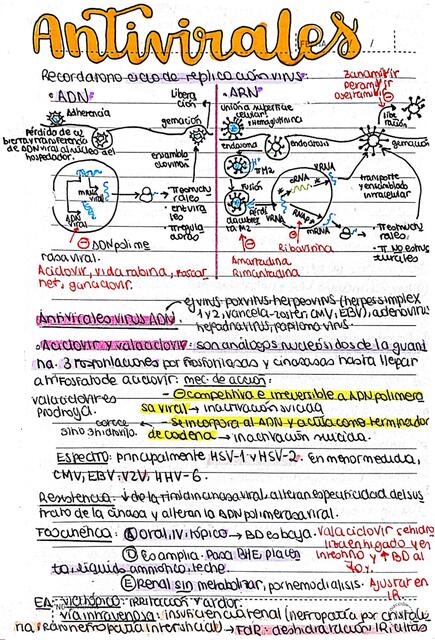 Antivirales
Recordatorio ciclo de replicación virus:
• ADN
Adherencia
Liberación
gemación
Pérdida de cubierta y transferencia de ADN viral al núcleo del hospedador.
ensamblaje
mRNA viral
ADN viral
• Tr estructurales
⊖ ADN polimerasa viral.
Aciclovir, vidarabina, foscarnet, ganciclovir.
• ARN
unión a superficie celular
Hemaglutinina
endosoma
endocitosis
H+
M2
fusión
cRNA
vRNA
mRNA
⊖
Ribavirina
Amantadina
Rimantadina
Zanamivir
Peramivir
Oseltamivir
liberación
gemación
transporte y ensamblado intracelular
• Tr estructurales
• Tr no estructurales
Antivirales virus ADN
ej virus: poxvirus herpesvirus (herpes simplex
1 y 2, varicela-zoster, CMV, EBV), adenovirus
hepadnavirus, papiloma virus.
• Aciclovir y valaciclovir: son análogos nucleósidos de la guani
na. 3 fosforilaciones por fosforilasas y cinasas hasta llegar
a trifosfato de aciclovir. mec. de acción:
valaciclovir es
prodroga.
- ⊖ competitiva e irreversible a ADN polimera
sa viral → inactivación suicida
- Se incorpora al ADN y actúa como terminador
de cadena → inactivación suicida.
carece
Espectro: principalmente HSV-1 y HSV-2. En menor medida,
CMV, EBV, VZV, HHV-6.
Resistencia: ↓ de la timidincinasa viral, alteran especificidad del sus
trato de la cinasa y alteran la ADN polimerasa viral.
Facocinética: Ⓐ oral, IV, tópico → BD es baja.
Valaciclovir se hidro
liza en hígado y en
intestino y ↑ BD al
70%.
Ⓓ es amplia. Pasa BHE, placen
ta, líquido amniótico, leche.
Ⓔ renal sin metabolizar, por hemodiálisis.
Ajustar en
IR.
EA: vía tópico: irritación y ardor.
vía intravenosa: insuficiencia renal (nefropatía por cristali
na, o nefropatía intersticial) → FaR: deshidratación, IR,